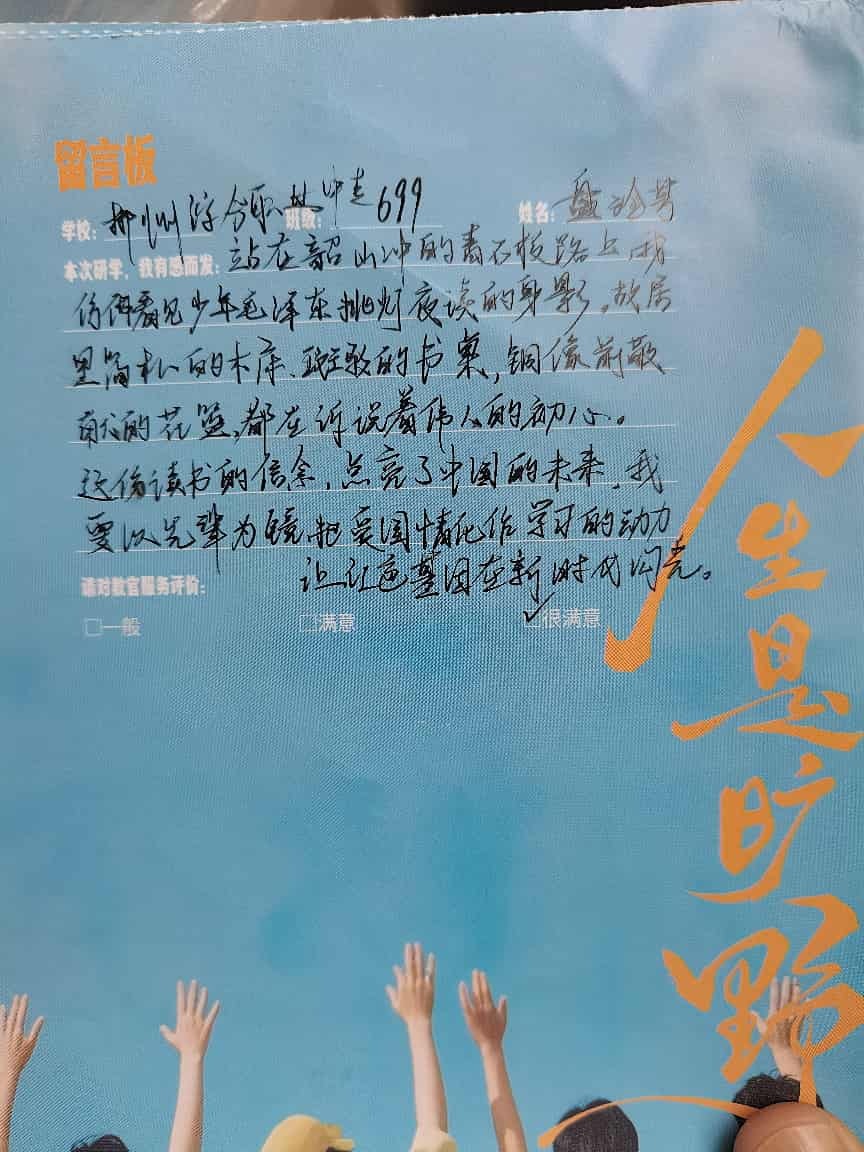 留言板
学校：郴州综合职业中专 班级：699 姓名：盘
本次研学，我有感而发：站在韶山冲的青石板路上，我
仿佛看见少年毛泽东挑灯夜读的身影。故居
里简朴的木床、斑驳的书案，铜像前敬
献的花篮，都在诉说着伟人的初心。
这份读书的信念，点亮了中国的未来，我
要以先辈为镜，把爱国情化作学习的动力
让红色基因在新时代闪光。
请对教官服务评价：
□一般 □满意 ☑很满意
人生是旷野